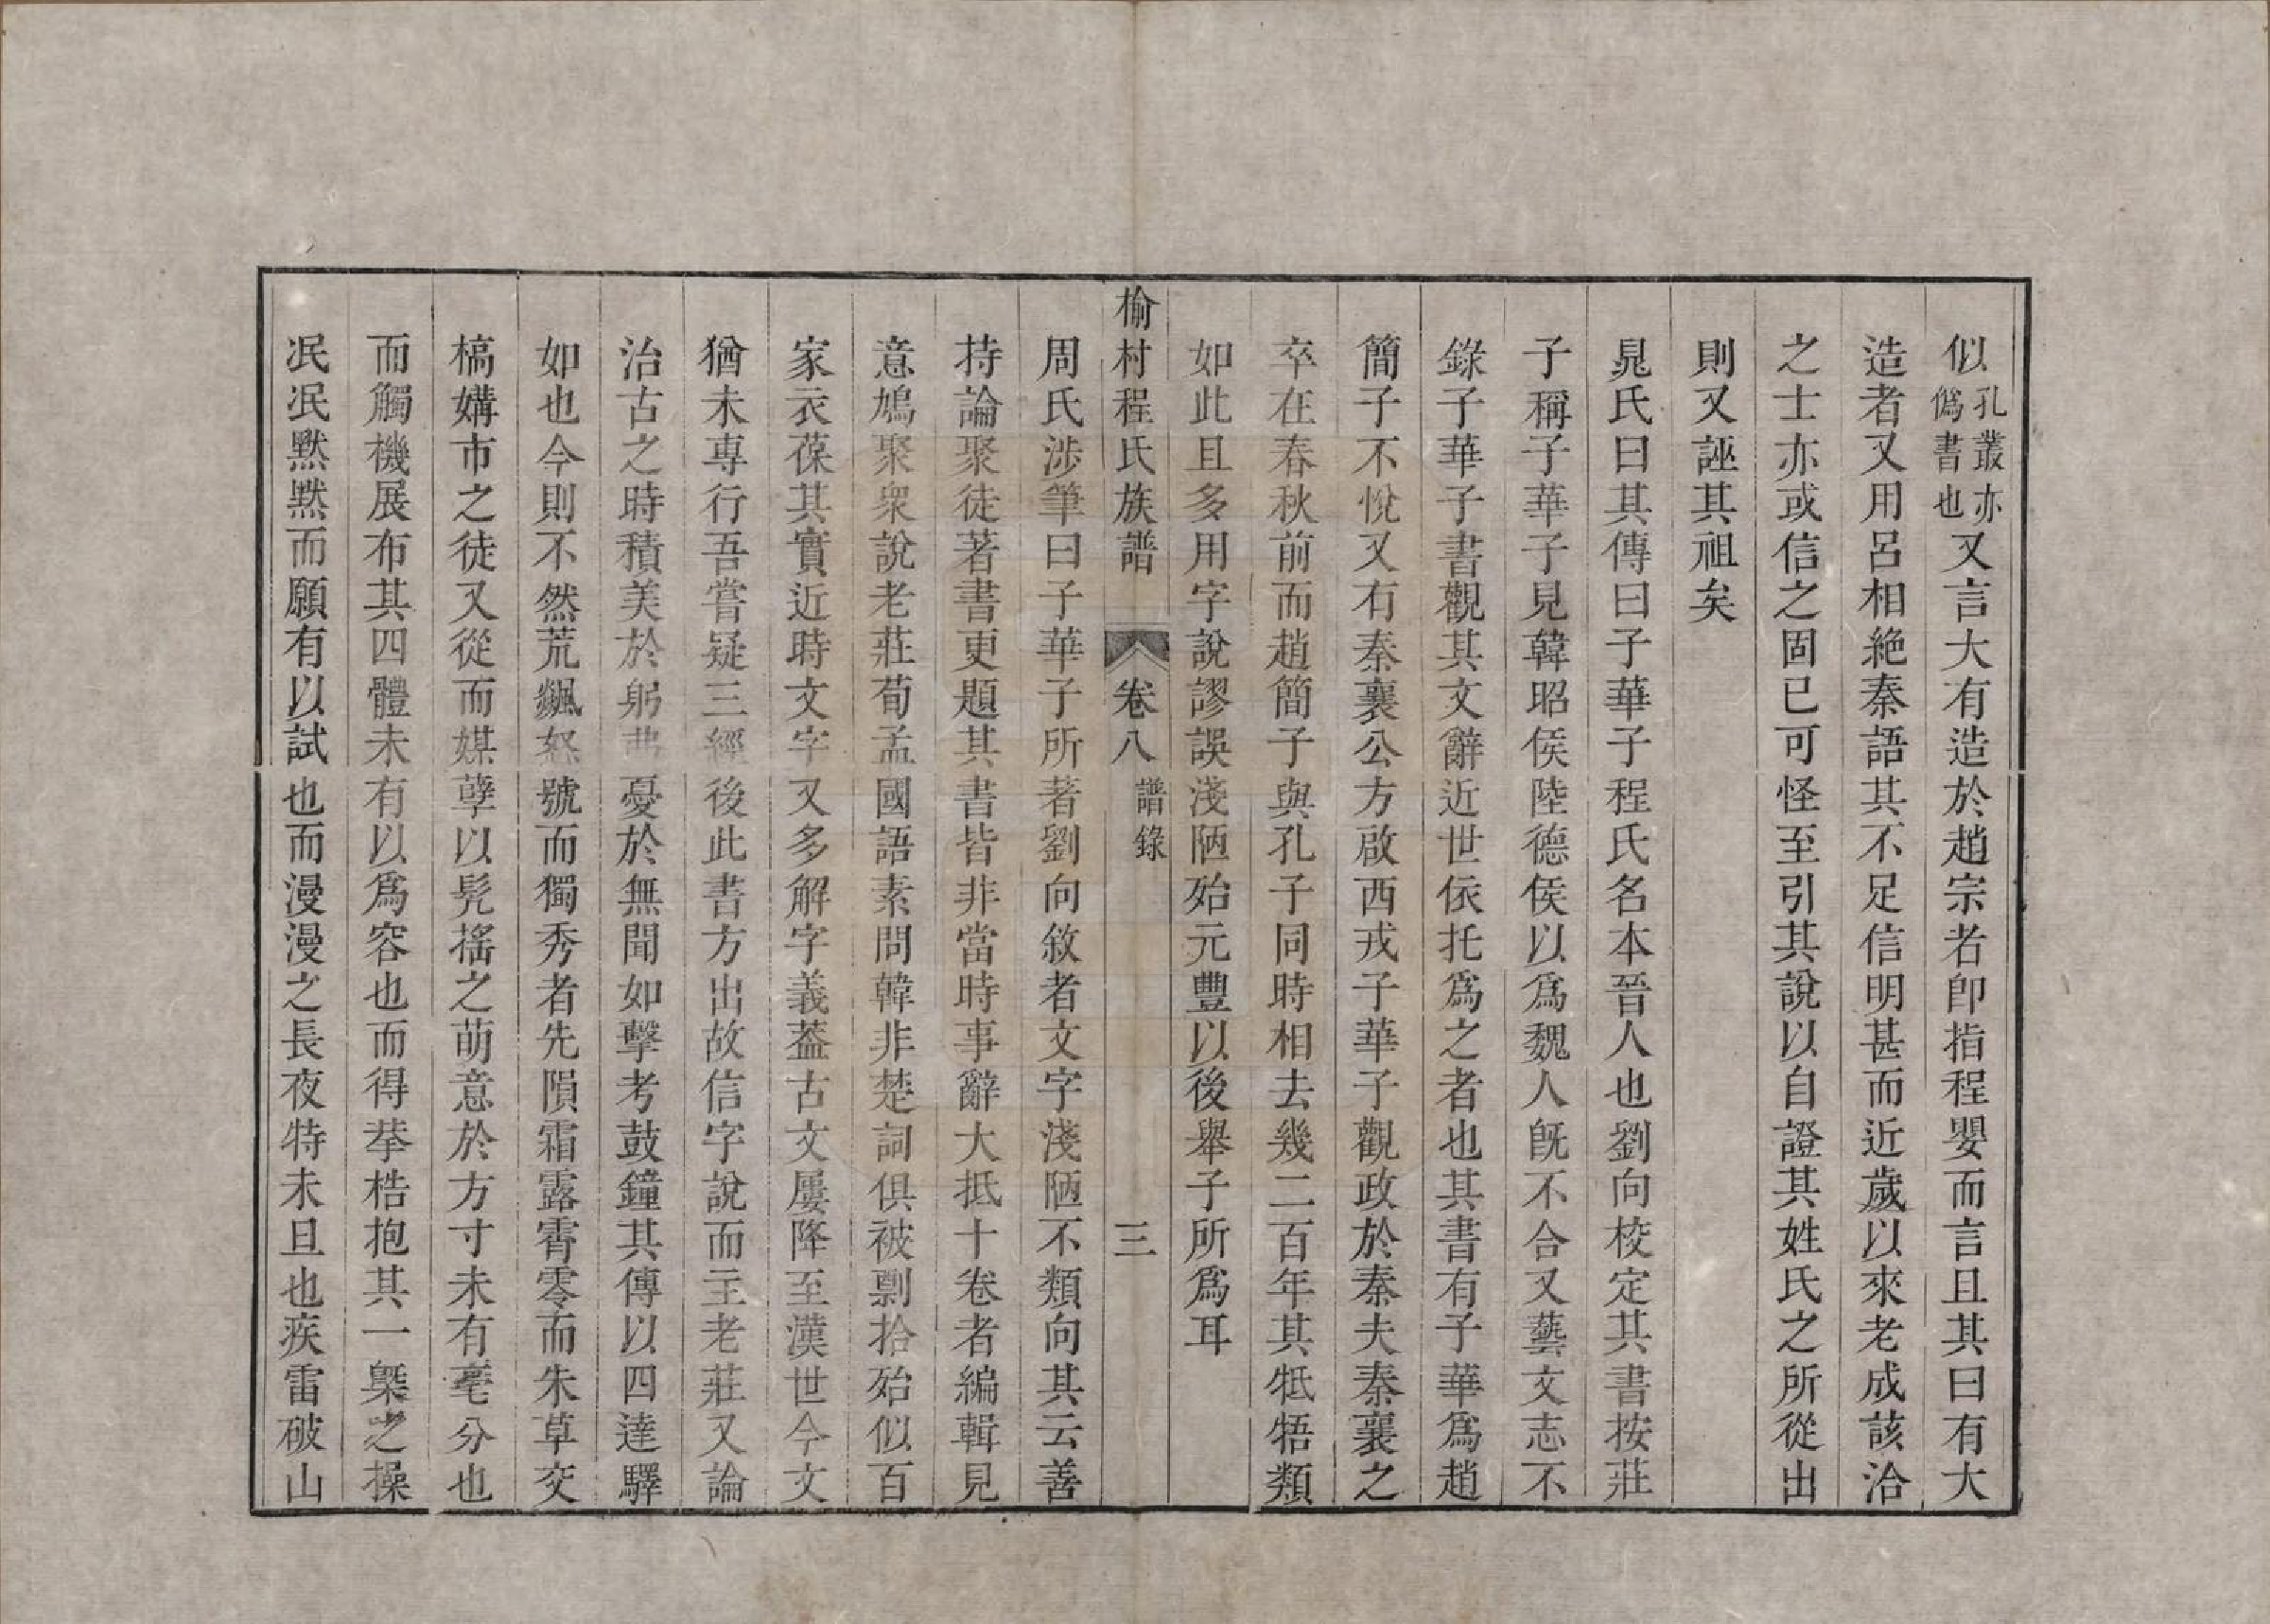 似孔叢亦僞書也又言大有造於趙宗者卽指程嬰而言且其曰有大
造者又用呂相絶秦語其不足信明甚而近歲以來老成該洽
之士亦或信之固已可怪至引其說以自證其姓氏之所從出
則又誣其祖矣
晁氏曰其傳曰子華子程氏名本晉人也劉向校定其書按莊
子稱子華子見韓昭侯陸德侯以爲魏人旣不合又藝文志不
錄子華子書觀其文辭近世依托爲之者也其書有子華爲趙
簡子不悅又有秦襄公方啟西戎子華子觀政於秦夫秦襄之
卒在春秋前而趙簡子與孔子同時相去幾二百年其牴牾類
如此且多用字說謬誤淺陋殆元豐以後舉子所爲耳
榆村程氏族譜 卷八 譜錄 三
周氏涉筆曰子華子所著劉向敘者文字淺陋不類向其云善
持論聚徒著書更題其書皆非當時事辭大抵十卷者編輯見
意鳩聚衆說老莊荀孟國語素問韓非楚詞俱被剽拾殆似百
家衣葆其實近時文字又多解字義葢古文屢降至漢世今文
猶未專行吾嘗疑三經後此書方出故信字說而主老莊又論
治古之時積美於躬弗憂於無聞如擊考鼓鐘其傳以四達驛
如也今則不然荒飆怒號而獨秀者先隕霜露霄零而朱草交
槁媾市之徒又從而媒孽以髡搖之萌意於方寸未有毫分也
而觸機展布其四體未有以爲容也而得拲梏抱其一槩之操
泯泯默默而願有以試也而漫漫之長夜特未旦也疾雷破山